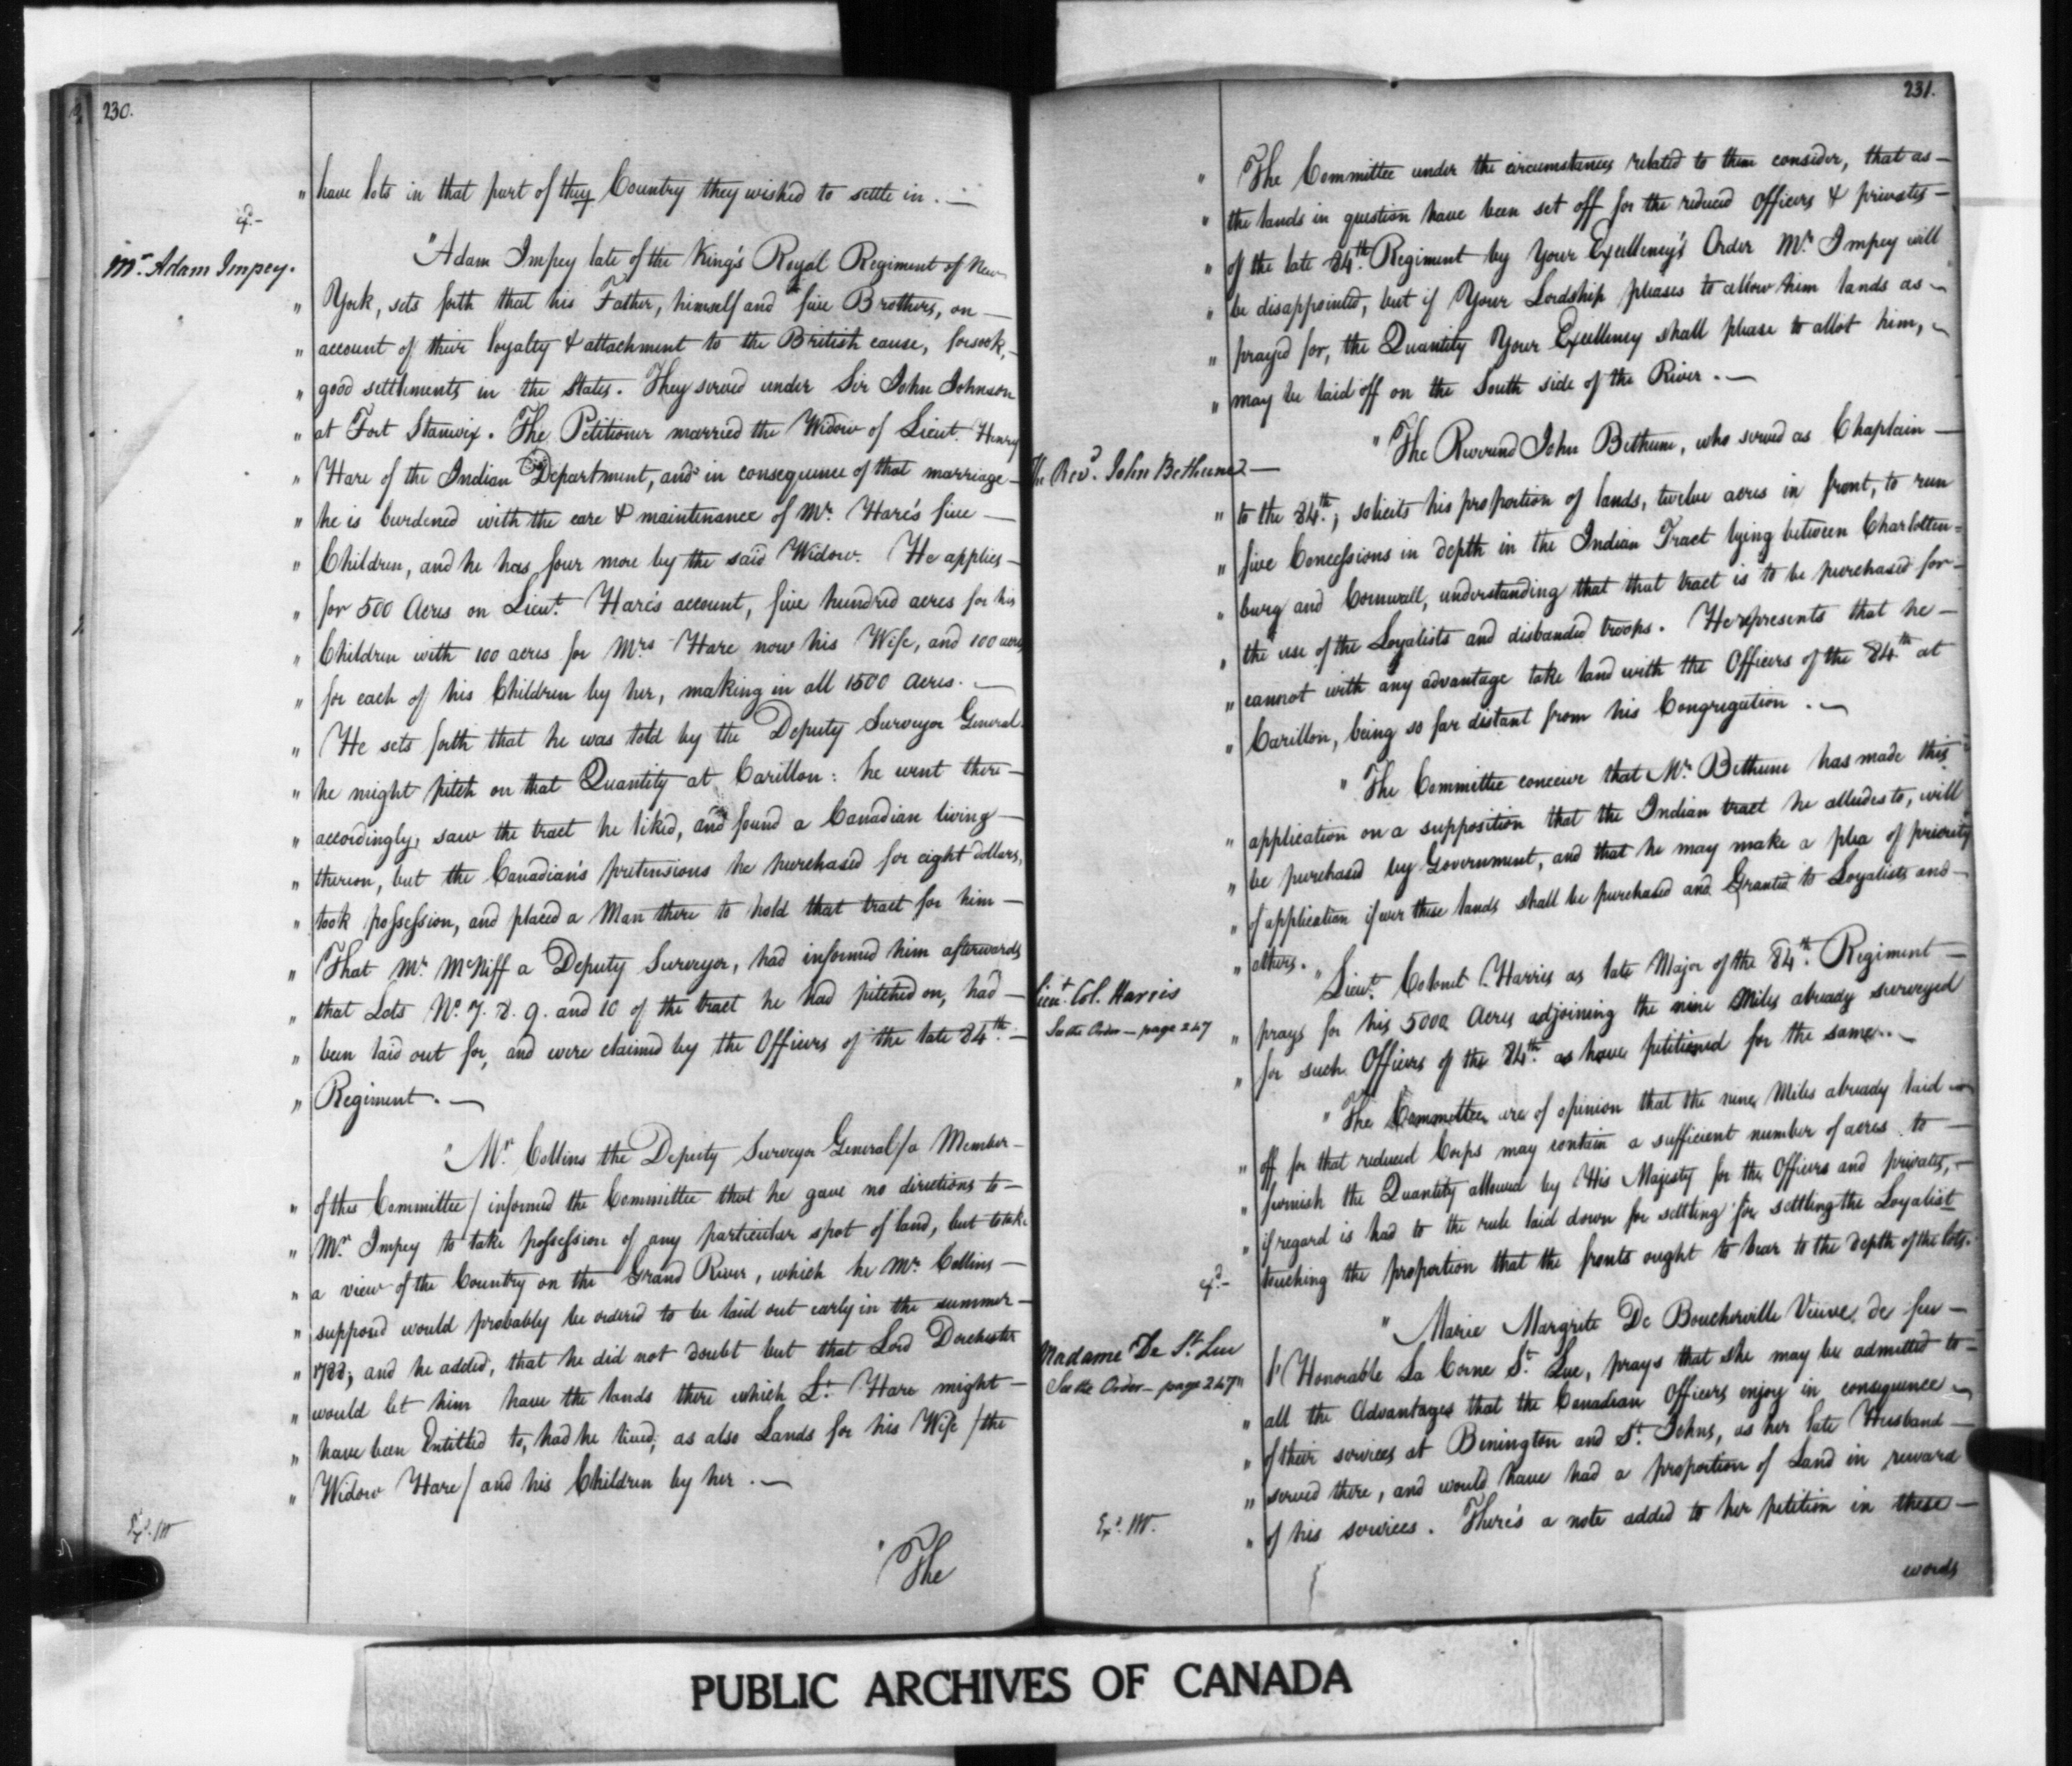 230.
" have lots in that part of they Country they wished to settle in . —
exd.—
Mr. Adam Impey.
"Adam Impey late of the King's Royal Regiment of New
" York, sets forth that his Father, himself and five Brothers, on —
" account of their loyalty & attachment to the British cause, forsook,—
" good settlements in the States. They served under Sir John Johnson
" at Fort Stanwix. The Petitioner married the Widow of Lieut. Henry
" Hare of the Indian Department, and in consequence of that marriage —
" he is burdened with the care & maintenance of Mr. Hare's five —
" Children, and he has four more by the said Widow. He applies —
" for 500 Acres on Lieut. Hare's account, five hundred acres for his
" Children with 100 acres for Mrs Hare now his Wife, and 100 acres
" for each of his Children by her, making in all 1500 acres. —
" He sets forth that he was told by the Deputy Surveyor General
" he might pitch on that Quantity at Carillon: he went there —
" accordingly, saw the tract he liked, and found a Canadian living —
" thereon, but the Canadian's pretensions he purchased for eight dollars,
" took possession, and placed a Man there to hold that tract for him —
" That Mr. McNiff a Deputy Surveyor, had informed him afterwards
" that Lots No. 7. 8. 9. and 10 of the tract he had pitched on, had —
" been laid out for, and were claimed by the Officers of the late 84th. —
" Regiment. —
" Mr. Collins the Deputy Surveyor General /a Member —
" of this Committee/ informed the Committee that he gave no directions to —
" Mr. Impey to take possession of any particular spot of land, but to take
" a view of the Country on the Grand River, which he Mr. Collins —
" supposed would probably be ordered to be laid out early in the summer —
" 1788; and he added, that he did not doubt but that Lord Dorchester
" would let him have the lands there which Lt. Hare might —
" have been Entitled to, had he lived; as also Lands for his Wife /the
" Widow Hare/ and his Children by her . —
Exd. W
" The
231.
" The Committee under the circumstances related to them consider, that as —
" the lands in question have been set off for the reduced Officers & privates —
" of the late 84th. Regiment by Your Excellency's Order Mr. Impey will
" be disappointed, but if Your Lordship pleases to allow him lands as —
" prayed for, the Quantity Your Excellency shall please to allot him, —
" may be laid off on the South side of the River . —
The Revd. John Bethune —
" The Reverend John Bethune, who served as Chaplain —
" to the 84th., solicits his proportion of lands, twelve acres in front, to run
" five Concessions in depth in the Indian Tract lying between Charlotten=
" burg and Cornwall, understanding that that tract is to be purchased for —
" the use of the Loyalists and disbanded troops. He represents that he —
" cannot with any advantage take land with the Officers of the 84th at
" Carillon, being so far distant from his Congregation . —
" The Committee conceive that Mr. Bethune has made this
" application on a supposition that the Indian tract he alludes to, will
" be purchased by Government, and that he may make a plea of priority
" of application if ever these lands shall be purchased and Granted to Loyalists and —
" others.
Lieut. Col. Harris
See the Order — page 247
" Lieut. Colonel Harris as late Major of the 84th. Regiment —
" prays for his 5000 Acres adjoining the nine Miles already surveyed
" for such Officers of the 84th. as have petitioned for the same . —
" The Committee are of opinion that the nine Miles already laid —
" off for that reduced Corps may contain a sufficient number of acres to —
" furnish the Quantity allowed by His Majesty for the Officers and privates, —
" if regard is had to the rule laid down for settling for settling the Loyalist
touching the proportion that the fronts ought to bear to the depth of the lots.
exd.—
Madame De St. Luc
See the Order — page 247
" Marie Margrite De Boucherville Veuve de feu —
" l'Honorable La Corne St. Luc, prays that she may be admitted to —
" all the Advantages that the Canadian Officers enjoy in consequence —
" of their services at Benington and St. Johns, as her late Husband —
" served there, and would have had a proportion of Land in reward
" of his services. There's a note added to her petition in these —
Exd. W.
words
PUBLIC ARCHIVES OF CANADA